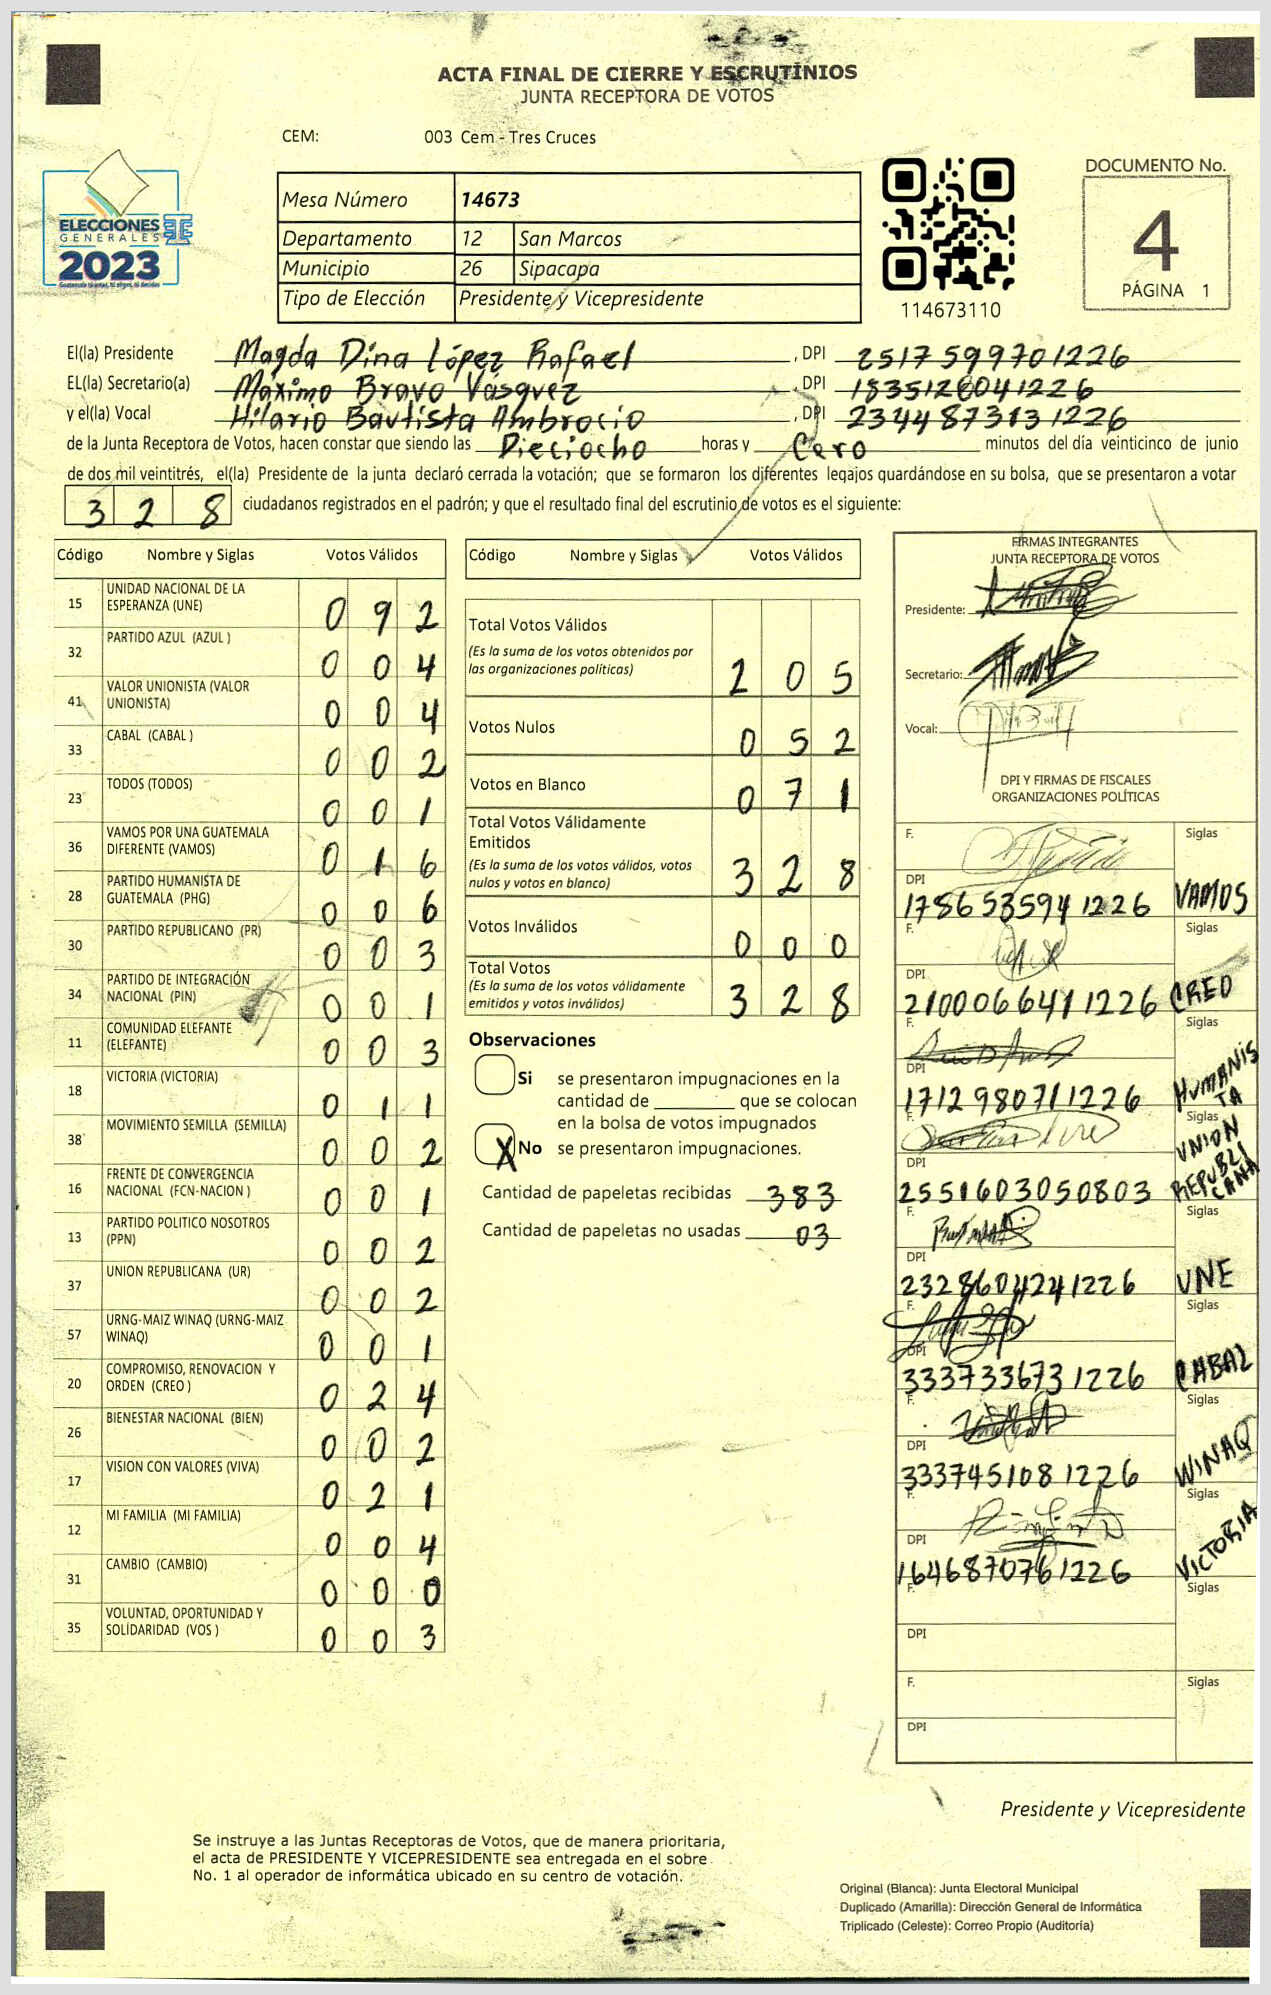 ACTA FINAL DE CIERRE Y ESCRUTINIOS
JUNTA RECEPTORA DE VOTOS
CEM: 003 Cem - Tres Cruces
ELECCIONES
GENERALES
2023
Mesa Número 14673
Departamento 12 San Marcos
Municipio 26 Sipacapa
Tipo de Elección Presidente y Vicepresidente
114673110
DOCUMENTO No.
4
PÁGINA 1
El(la) Presidente Magda Dina López Rafael , DPI 2517599701226
EL(la) Secretario(a) Máximo Bravo Vásquez , DPI 1835120041226
y el(la) Vocal Hilario Bautista Ambrocio , DPI 2344873131226
de la Junta Receptora de Votos, hacen constar que siendo las Dieciocho horas y Cero minutos del día veinticinco de junio
de dos mil veintitrés, el(la) Presidente de la junta declaró cerrada la votación; que se formaron los diferentes legajos guardándose en su bolsa, que se presentaron a votar
3 2 8 ciudadanos registrados en el padrón; y que el resultado final del escrutinio de votos es el siguiente:
Código Nombre y Siglas Votos Válidos
15 UNIDAD NACIONAL DE LA ESPERANZA (UNE) 0 9 2
32 PARTIDO AZUL (AZUL ) 0 0 4
41 VALOR UNIONISTA (VALOR UNIONISTA) 0 0 4
33 CABAL (CABAL ) 0 0 2
23 TODOS (TODOS) 0 0 1
36 VAMOS POR UNA GUATEMALA DIFERENTE (VAMOS) 0 1 6
28 PARTIDO HUMANISTA DE GUATEMALA (PHG) 0 0 6
30 PARTIDO REPUBLICANO (PR) 0 0 3
34 PARTIDO DE INTEGRACIÓN NACIONAL (PIN) 0 0 1
11 COMUNIDAD ELEFANTE (ELEFANTE) 0 0 3
18 VICTORIA (VICTORIA) 0 1 1
38 MOVIMIENTO SEMILLA (SEMILLA) 0 0 2
16 FRENTE DE CONVERGENCIA NACIONAL (FCN-NACION ) 0 0 1
13 PARTIDO POLITICO NOSOTROS (PPN) 0 0 2
37 UNION REPUBLICANA (UR) 0 0 2
57 URNG-MAIZ WINAQ (URNG-MAIZ WINAQ) 0 0 1
20 COMPROMISO, RENOVACION Y ORDEN (CREO ) 0 2 4
26 BIENESTAR NACIONAL (BIEN) 0 0 2
17 VISION CON VALORES (VIVA) 0 2 1
12 MI FAMILIA (MI FAMILIA) 0 0 4
31 CAMBIO (CAMBIO) 0 0 0
35 VOLUNTAD, OPORTUNIDAD Y SOLIDARIDAD (VOS ) 0 0 3
Código Nombre y Siglas Votos Válidos
Total Votos Válidos
(Es la suma de los votos obtenidos por
las organizaciones políticas) 2 0 5
Votos Nulos 0 5 2
Votos en Blanco 0 7 1
Total Votos Válidamente
Emitidos
(Es la suma de los votos válidos, votos
nulos y votos en blanco) 3 2 8
Votos Inválidos 0 0 0
Total Votos
(Es la suma de los votos válidamente
emitidos y votos inválidos) 3 2 8
Observaciones
Si se presentaron impugnaciones en la
cantidad de ________ que se colocan
en la bolsa de votos impugnados
X No se presentaron impugnaciones.
Cantidad de papeletas recibidas 383
Cantidad de papeletas no usadas 03
FIRMAS INTEGRANTES
JUNTA RECEPTORA DE VOTOS
Presidente:
Secretario:
Vocal:
DPI Y FIRMAS DE FISCALES
ORGANIZACIONES POLÍTICAS
F. Siglas
DPI
1786535941226 VAMOS
F. Siglas
DPI
2100066411226 CREO
F. Siglas
DPI
1712980711226 HUMANISTA
F. Siglas
DPI
2551603050803 UNION REPUBLICANA
F. Siglas
DPI
2328604241226 UNE
F. Siglas
DPI
3337336731226 CABAL
F. Siglas
DPI
3337451081226 WINAQ
F. Siglas
DPI
1646870761226 VICTORIA
F. Siglas
DPI
F. Siglas
DPI
Presidente y Vicepresidente
Se instruye a las Juntas Receptoras de Votos, que de manera prioritaria,
el acta de PRESIDENTE Y VICEPRESIDENTE sea entregada en el sobre
No. 1 al operador de informática ubicado en su centro de votación.
Original (Blanca): Junta Electoral Municipal
Duplicado (Amarilla): Dirección General de Informática
Triplicado (Celeste): Correo Propio (Auditoría)